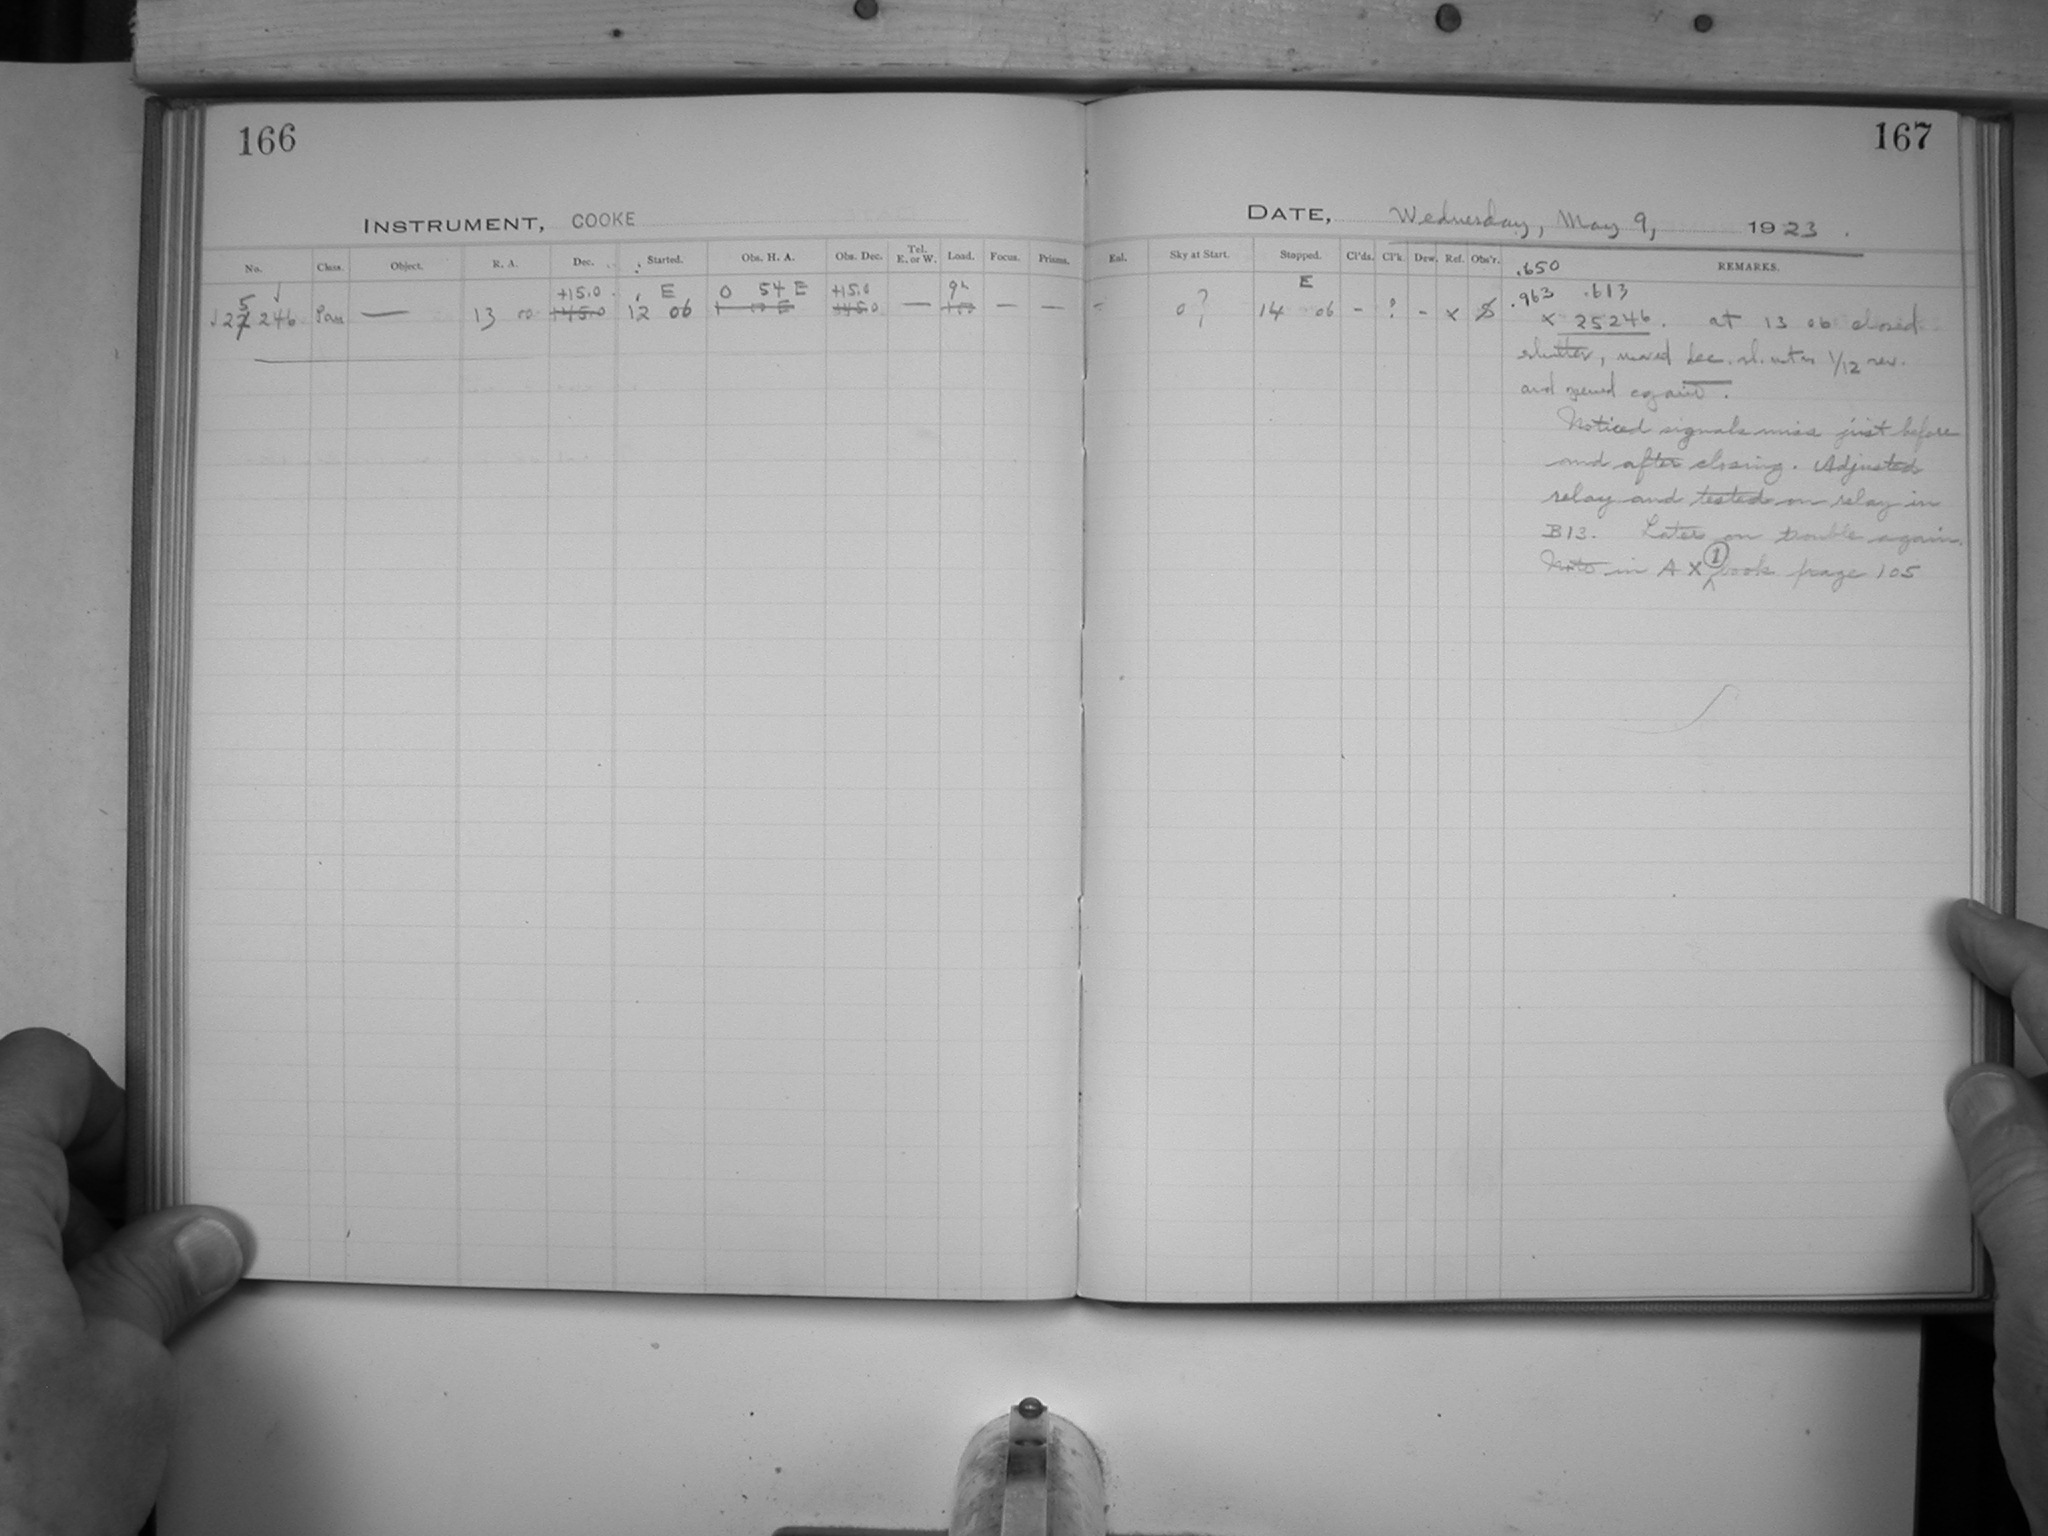 166
INSTRUMENT, COOKE
No. Class. Object. R. A. Dec. Started. Obs. H. A. Obs. Dec. Tel. E. or W. Load. Focus. Prisms.
5 +15.0 E 0 54 E +15.0 9h
27246 — 13 00 +45.0 12 06 1 00 E +45.0 — — —
167
DATE, Wednesday, May 9, 1923.
Eal. Sky at Start. Stopped. Cl'ds. Cl'k. Dew. Ref. Obs'r. REMARKS.
.650
E .963 .613
- 0 ? 14 06 - ? - x S x 25246. at 13 06 closed
shutter, moved dec. 1/12 rev.
and opened again.
Noticed signals miss just before
and after closing. Adjusted
relay and tested on relay in
B13. Later on trouble again.
Note in A X ① book page 105